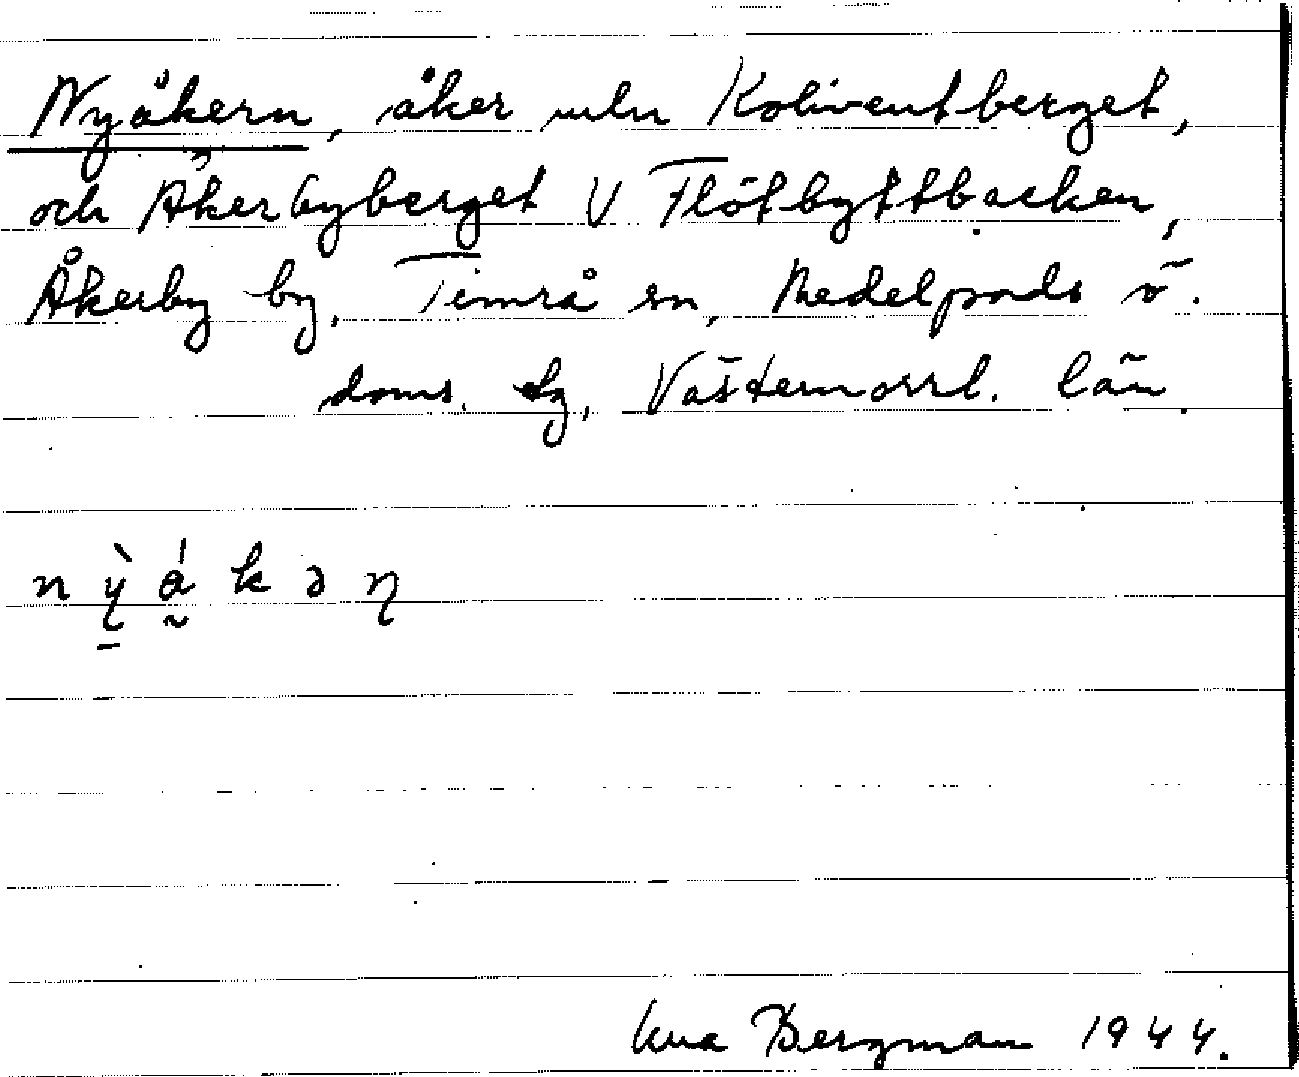 Nyåkern, åker mln Koliventberget,
och Åkerbyberget V Flötbyttbacken,
Åkerby by, Timrå sn, Medelpads v.
doms. tg, Västernorrl. län
n ỳ á k ə n
Bergman 1944.